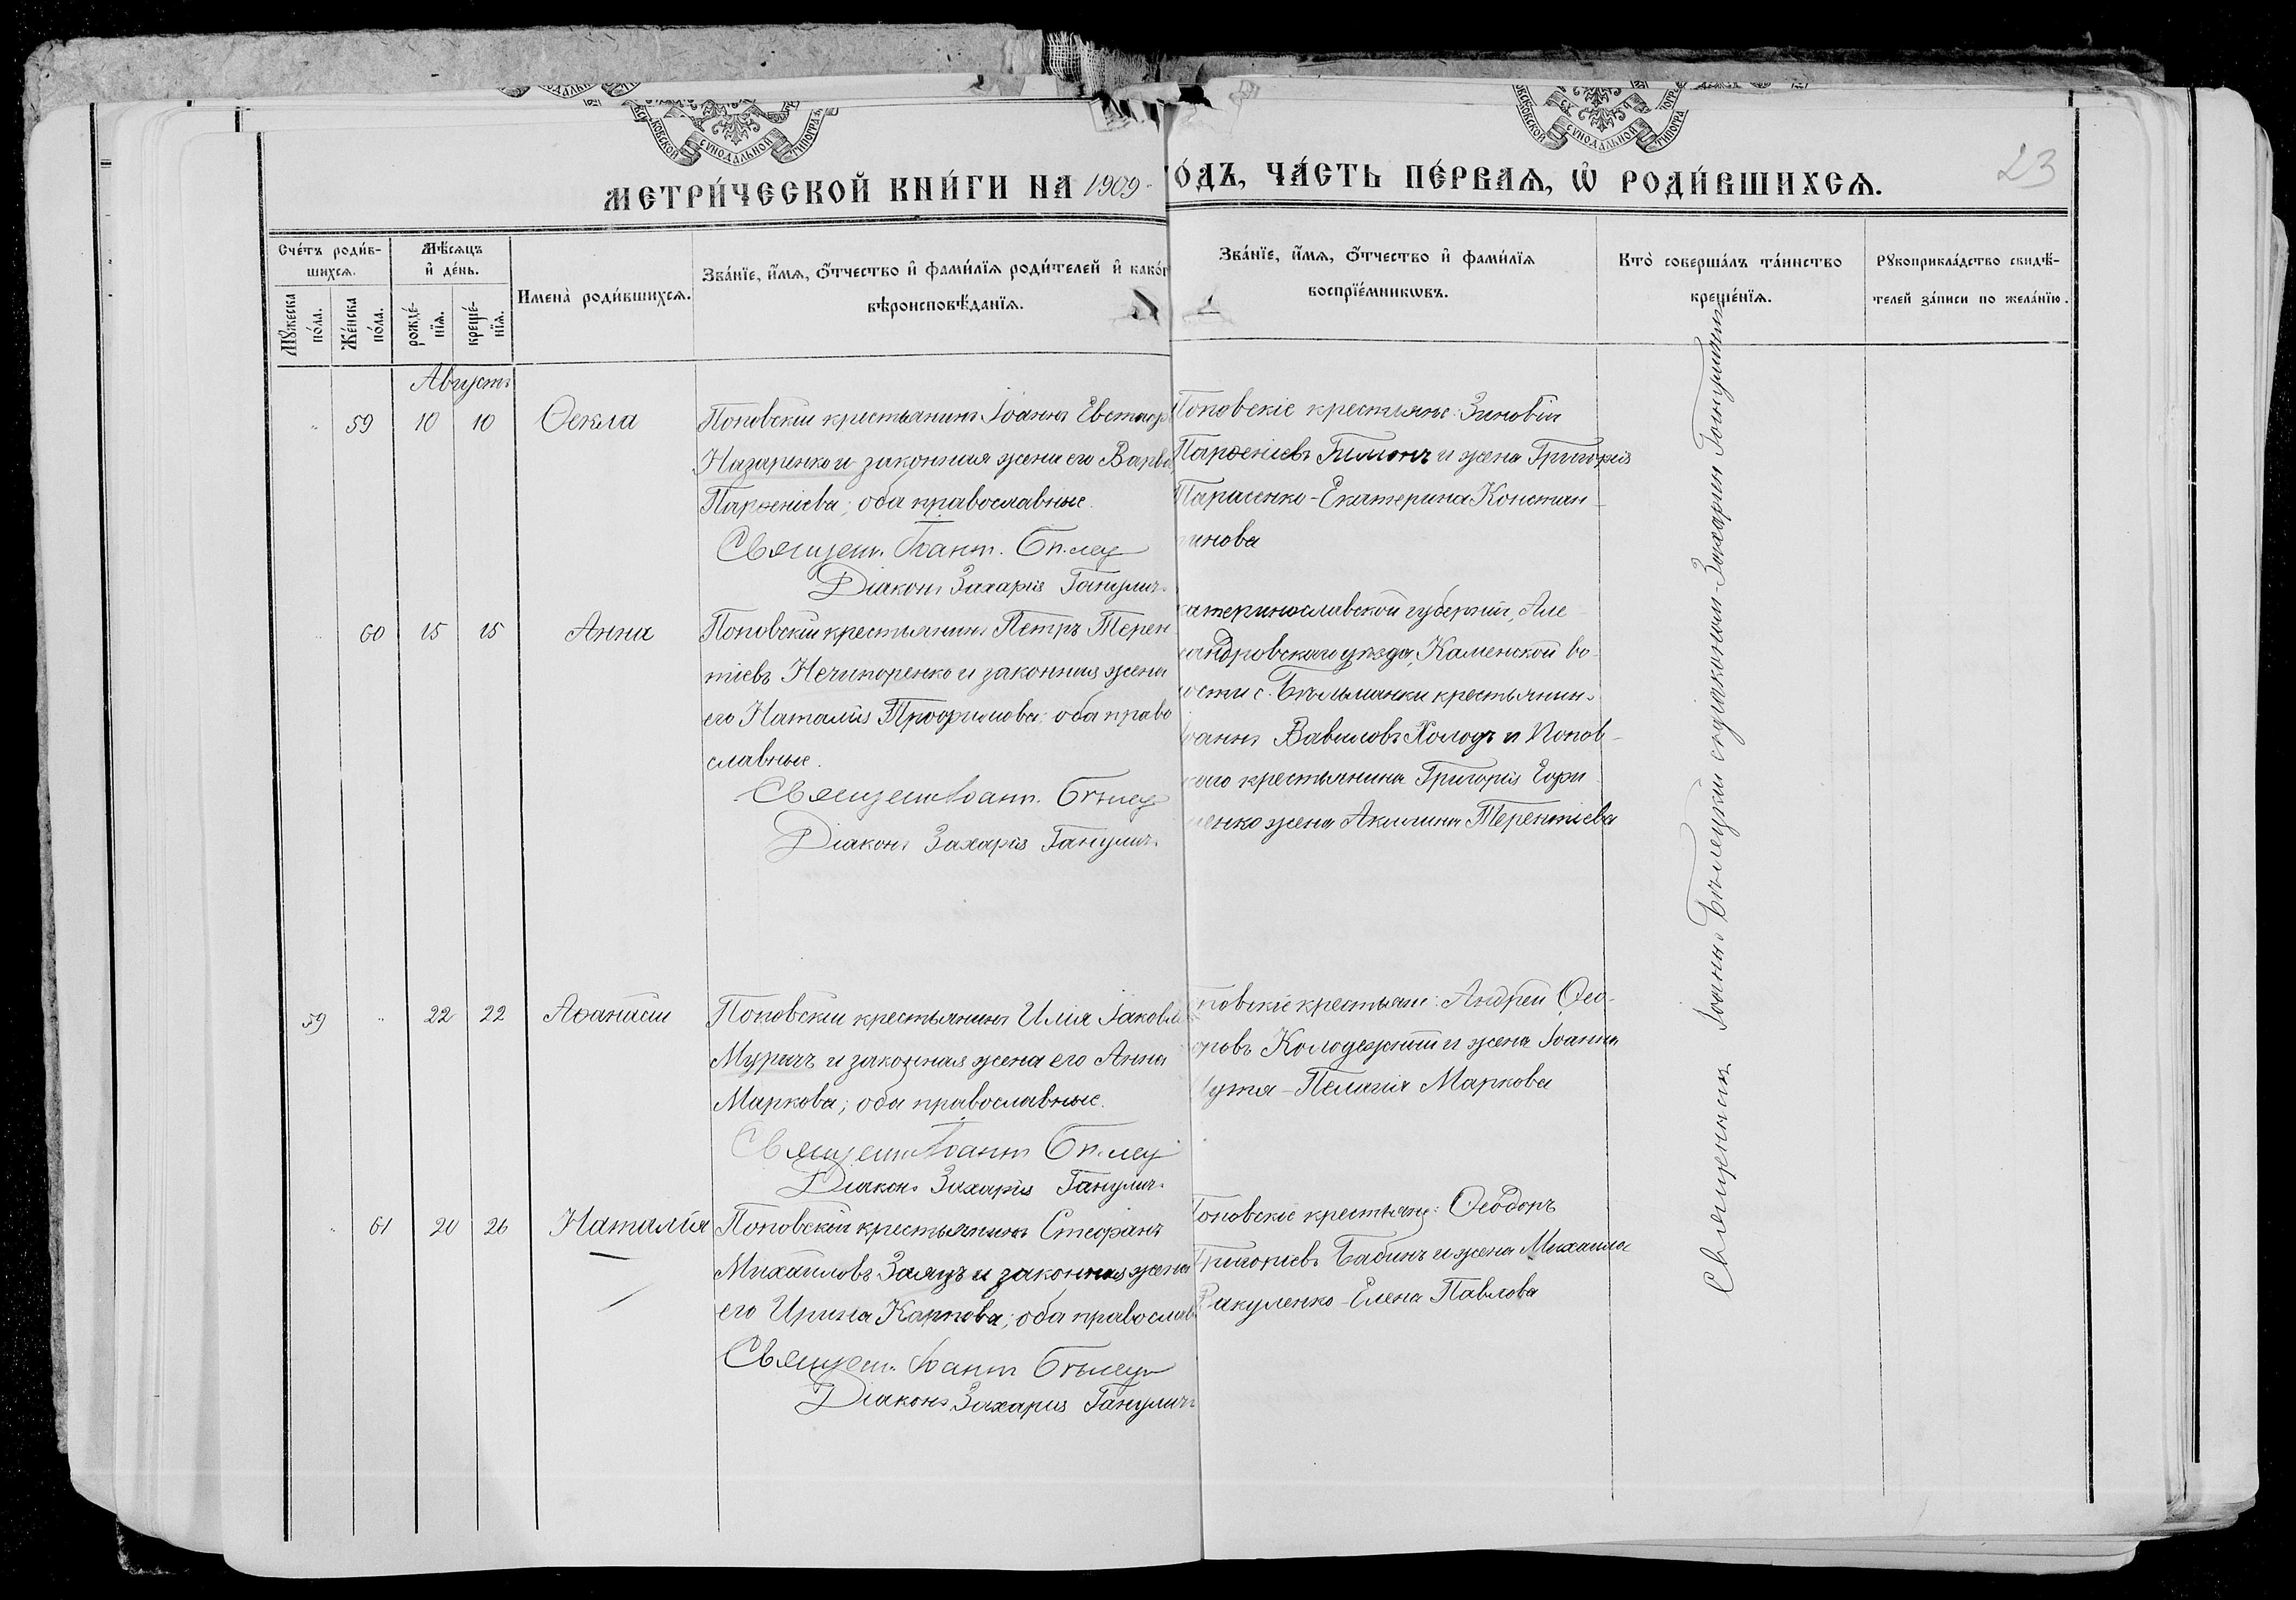 МЕТРИ́ЧЕСКОЙ КНИ́ГИ НА 1909
ОДЪ, ЧА́СТЬ ПЕ́РВАЯ, Ѡ҆ РОДИ́ВШИХСЯ.
23
Сче́тъ роди́в-
шихся.
Мѣ́сяцъ
и҆ де́нь.
Мꙋ́жеска
по́ла.
Же́нска
по́ла.
рожде́-
нїя.
креще́-
нїя.
Имена̀ роди́вшихся.
Зва́нїе, и҆́мя, ѻ҆́тчество и҆ фами́лїя роди́телей и҆ како́г
вѣроисповѣ́данїя.
Зва́нїе, и҆́мя, ѻ҆́тчество и҆ фами́лїя
воспрїе́мникѡвъ.
Кто̀ соверша́лъ та́инство
креще́нїя.
Рꙋкоприкла́дство свидѣ́-
телей за́писи по жела́нїю.
Августъ
59 10 10 Ѳекла
Поповскій крестьянинъ Іоаннъ Евстаф
Назаренко и законная жена его Варва
Парѳеніева; оба православные.
Священ. Іоанн. Бѣлец
Діаконъ Захарія Ганулич
Поповскіе крестьяне: Зиновій
Парѳеніевъ Тимонъ и жена Григорія
Тарасенко - Екатерина Констан-
тинова
60 15 15 Анна
Поповскій крестьянинъ Петръ Терен
тіевъ Нечипоренко и законная жена
его Наталія Трофимова; оба право
славные.
Священ Іоанн. Бѣлец
Діаконъ Захарія Ганулич
катеринославской губерніи, Але
сандровскаго уѣзда, Каменской во-
лости с. Бѣльманки крестьянинъ
Іоаннъ Вавиловъ Холодъ и Попов-
ского крестьянина Григорія Ефи
менко жена Акилина Терентіева
59 22 22 Аѳанасій
Поповскій крестьянинъ Илія Іаковл
Муричъ и законная жена его Анна
Маркова; оба православные.
Священ Іоанн Бѣлец
Діаконъ Захарія Ганулич
повскіе крестьяне: Андрей Ѳео-
доровъ Колодежный и жена Іоанна
Пелагія Маркова
61 20 26 Наталія
Поповскій крестьянинъ Стефанъ
Михайловъ Заяцъ и законная жена
его Ирина Карпова; оба православ
Священ. Іоанн Бѣлец
Діаконъ Захарія Ганулич
Поповскіе крестьяне: Ѳеодоръ
Григоріевъ Бабинъ и жена Михаила
Викуленко - Елена Павлова
Священникъ Іоаннъ Бѣлецкій съ діакономъ Захаріей Ганулич